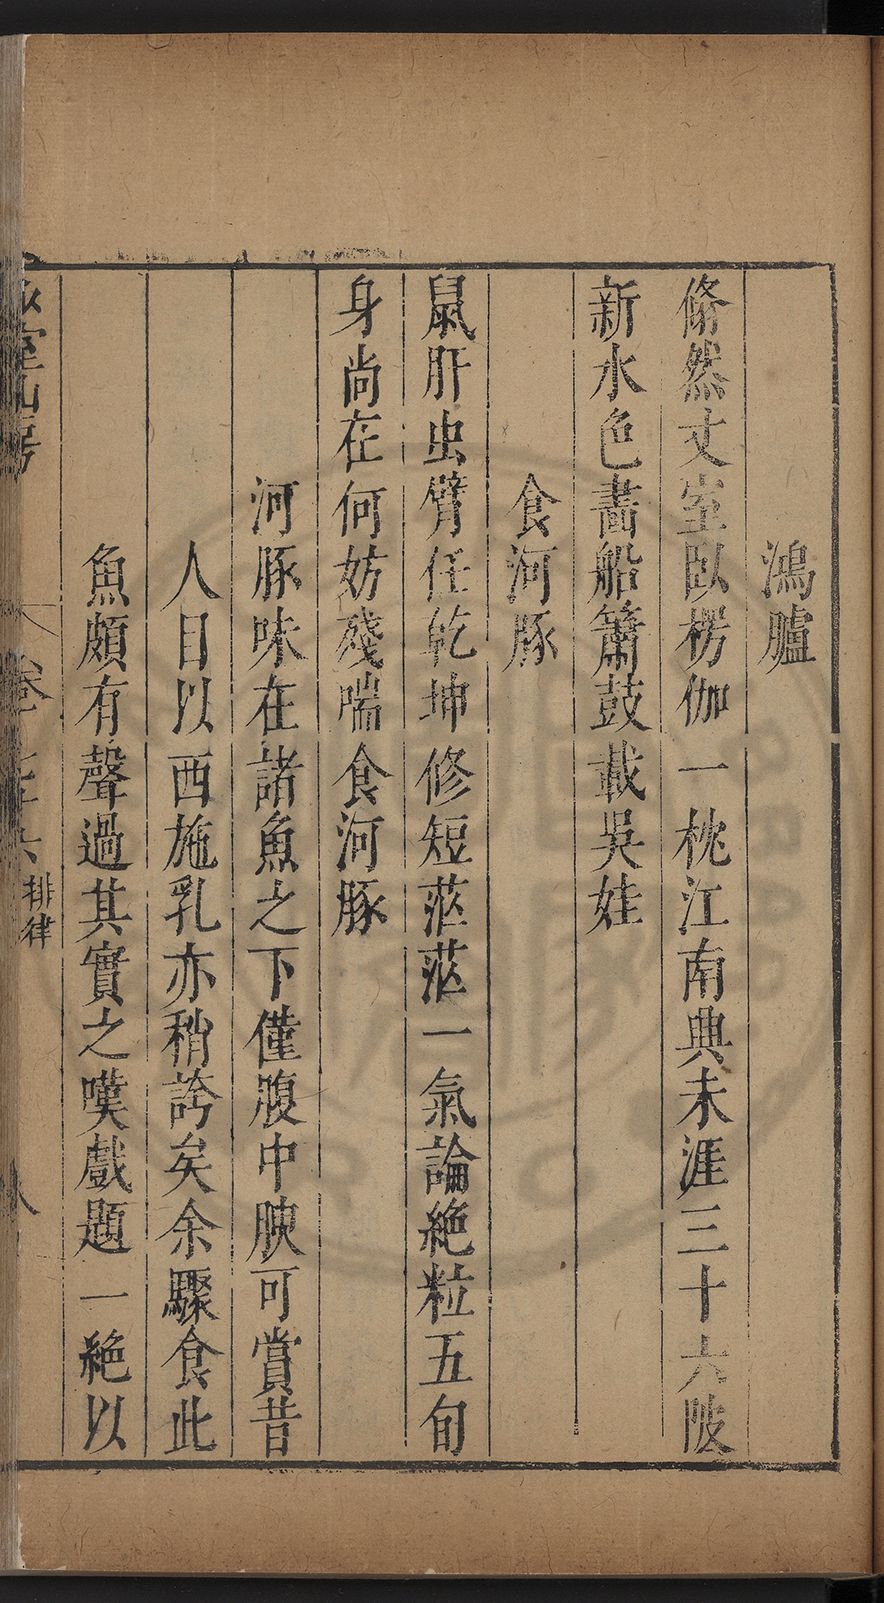 鴻臚
翛然丈室臥楞伽一枕江南典未涯三十六陂
新水色畵船簫鼓載吳娃
食河豚
鼠肝虫臂任乾坤修短茫茫一氣論絶粒五旬
身尚在何妨殘喘食河豚
河豚味在諸魚之下僅腹中腴可賞昔
人目以西施乳亦稍誇矣余驟食此
魚頗有聲過其實之嘆戲題一絶以
室山房
卷七十六
排律
八